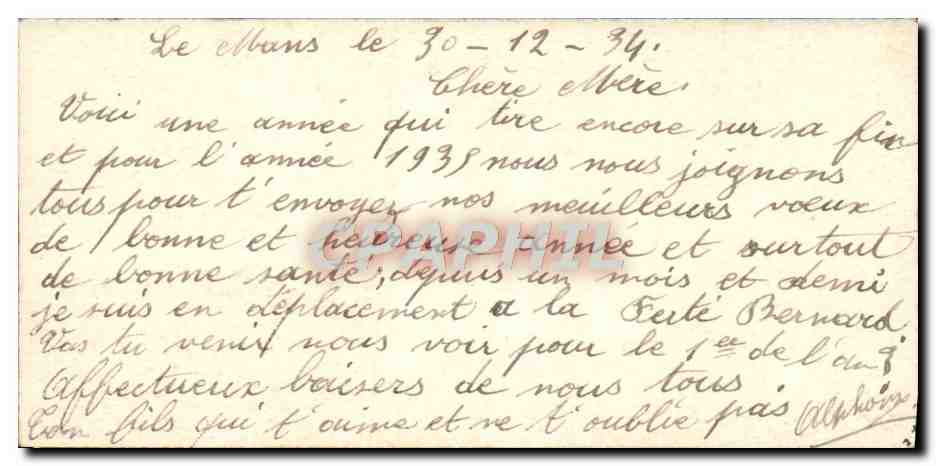 Le Mans le 30-12-34.
Chère Mère.
Voici une année qui tire encore sur sa fin
et pour l'année 1935 nous nous joignons
tous pour t'envoyer nos meuilleurs vœux
de bonne et heureuse année et surtout
de bonne santé; depuis un mois et demi
je suis en déplacement a la Ferté Bernard
Vas tu venir nous voir pour le 1er de l'an ?
Affectueux baisers de nous tous.
Ton fils qui t'aime et ne t'oublie pas. Alphonse.
CPAPHIL